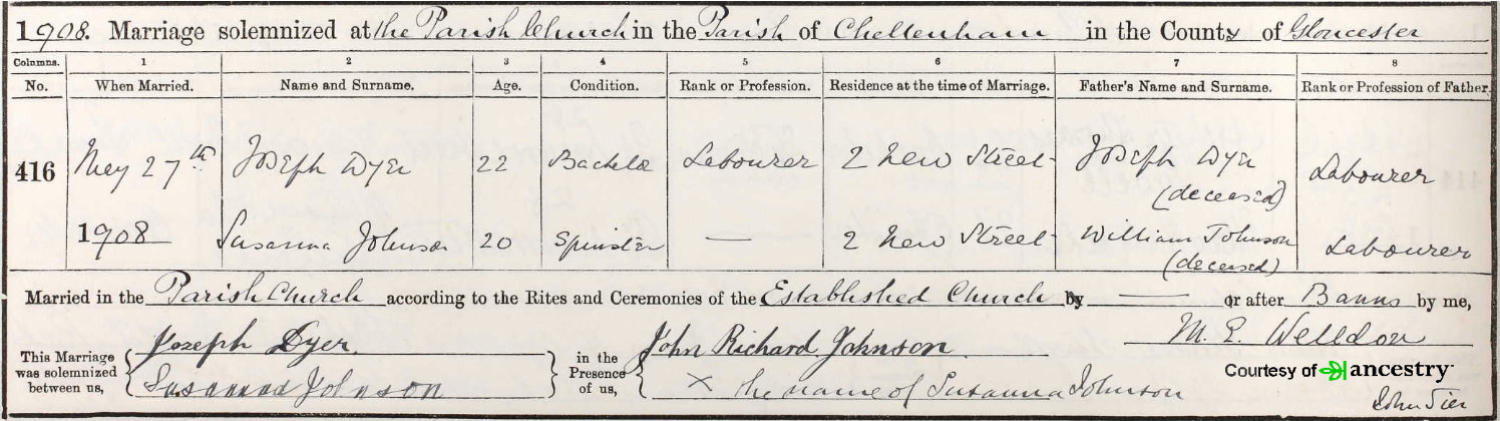 1908. Marriage solemnized at the Parish Church in the Parish of Cheltenham in the County of Gloucester
Columns. 1 2 3 4 5 6 7 8
No. When Married. Name and Surname. Age. Condition. Rank or Profession. Residence at the time of Marriage. Father's Name and Surname. Rank or Profession of Father.
416 May 27th Joseph Dyer 22 Bachelor Labourer 2 New Street Joseph Dyer Labourer
(deceased)
1908 Susanna Johnson 20 Spinster — 2 New Street William Johnson Labourer
(deceased)
Married in the Parish Church according to the Rites and Ceremonies of the Established Church by — or after Banns by me,
This Marriage was solemnized between us, Joseph Dyer in the Presence of us, John Richard Johnson M. E. Welldon
Susannah Johnson X the name of Susanna Johnson
Courtesy of ancestry